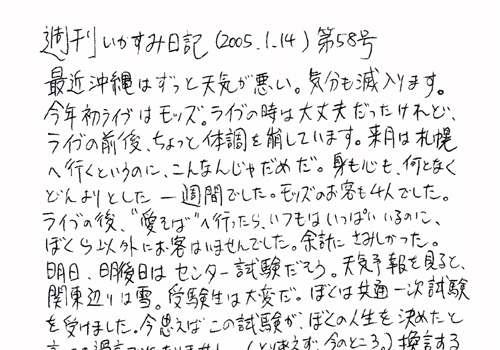 週刊いかすみ日記 (2005.1.14) 第58号
最近沖縄はずっと天気が悪い。気分も滅入ります。
今年初ライブはモッズ。ライブの時は大丈夫だったけれど、
ライブの前後、ちょっと体調を崩しています。来月は札幌
へ行くというのに、こんなんじゃだめだ。身も心も、何となく
どんよりとした一週間でした。モッズのお客も4人でした。
ライブの後、"愛えば"へ行ったら、いつもはいっぱいいるのに、
ぼくら以外にお客はいませんでした。余計にさみしかった。
明日、明後日はセンター試験だそう。天気予報を見ると、
関東辺りは雪。受験生は大変だ。ぼくは共通一次試験
を受けました。今思えばこの試験が、ぼくの人生を決めたと